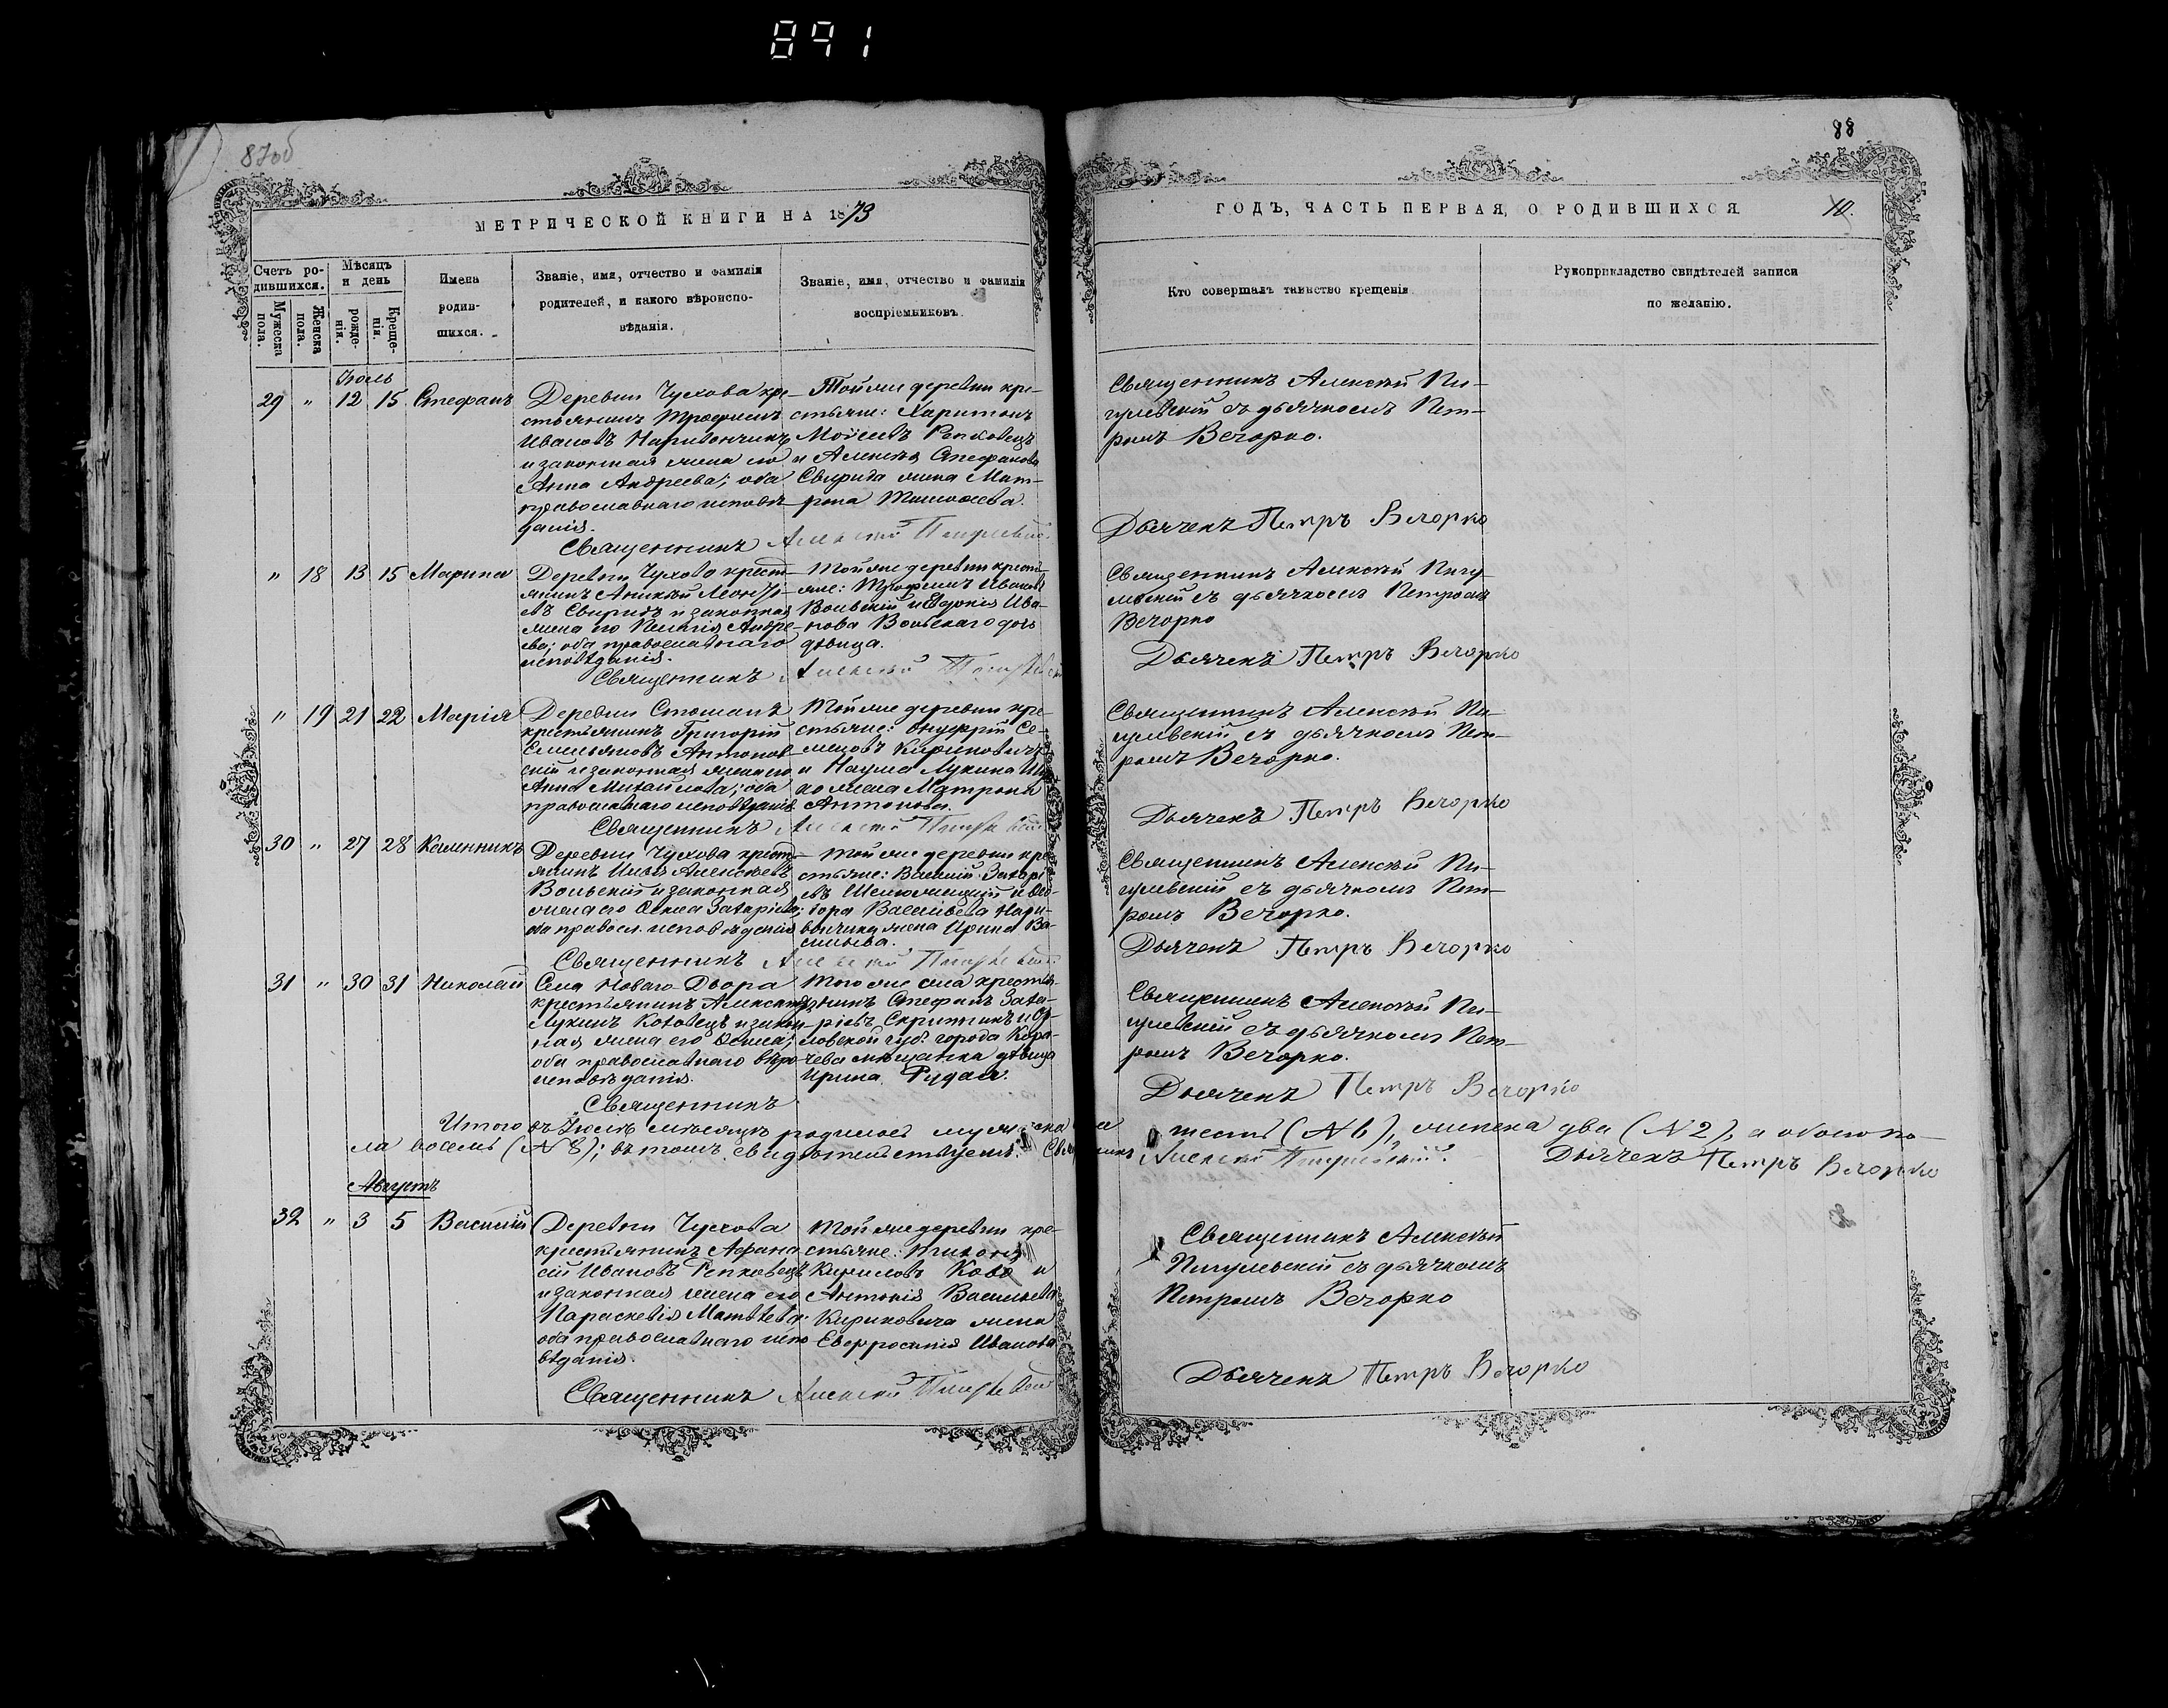 891
87об
88
МЕТРИЧЕСКОЙ КНИГИ НА 1873
ГОДЪ, ЧАСТЬ ПЕРВАЯ, О РОДИВШИХСЯ
10.
Счетъ родившихся.
Мужеска пола.
Женска пола.
Мѣсяцъ и день
рожденія.
Крещенія.
Имена родившихся.
Званіе, имя, отчество и фамилія
родителей, и какого вѣроиспо-
вѣданія.
Званіе, имя, отчество и фамилія
воспріемниковъ.
Кто совершалъ таинство крещенія
Рукоприкладство свидѣтелей записи
по желанію.
Іюль
29 " 12 15 Стефанъ
Деревни Чухова кре-
стьянинъ Трофимъ
Ивановъ
и законная жена его
Анна Андреева; оба
православнаго исповѣ-
данія.
Тойже деревни кре-
стьяне: Харитонъ
Моѵсеевъ Репковецъ
и Алексѣя Стефанова
Свирида жена Мат-
рона Тимоѳеева.
Священникъ Алексѣй Пигулевскій
Священникъ Алексѣй Пи-
гулевскій съ дьячкомъ Пет-
ромъ Вечорко.
Дьячекъ Петръ Вечорко
" 18 13 15 Марина
Деревни Чухова крест-
янинъ Аникѣй Леонтіе-
въ Свиридъ и законная
жена его Пелагія Андре-
ева; оба православнаго
исповѣданія.
Тойже деревни крестья-
яне: Трофимъ Ивановъ
Вольскій и Евдокія Ива-
нова Вольскаго дочь
дѣвица.
Священникъ Алексѣй Пигулевскій
Священникъ Алексѣй Пигу-
левскій съ дьячкомъ Петромъ
Вечорко
Дьячекъ Петръ Вечорко
" 19 21 22 Марія
Деревни
крестьянинъ Григорій
Емельяновъ Антонов-
скій и законная жена его
Анна Михайлова; оба
православнаго исповѣданія.
Тойже деревни кре-
стьяне: Онуфрій Се-
меновъ Кириковичъ
и Наума Лукина
жена Матрона
Антонова.
Священникъ Алексѣй Пигулевскій
Священникъ Алексѣй Пи-
гулевскій съ дьячкомъ Пет-
ромъ Вечорко.
Дьячекъ Петръ Вечорко
30 " 27 28 Каленникъ
Деревни Чухова кресть-
янинъ Илья Алексѣевъ
Вольскій и законная
жена его Ѳекла Захаріева;
оба правосл. исповѣданія
Тойже деревни кре-
стьяне: Василій Захарі-
евъ и Ѳео-
дора Васильева
жена Ирина Ва-
сильева.
Священникъ Алексѣй Пигулевскій
Священникъ Алексѣй Пи-
гулевскій съ дьячкомъ Пет-
ромъ Вечорко.
Дьячекъ Петръ Вечорко
31 " 30 31 Николай
Села Новаго-Двора
крестьянинъ Александръ
Лукинъ Котовецъ и закон-
ная жена его
оба православнаго вѣро-
исповѣданія.
Того же села крестья-
нинъ Стефанъ Заха-
ріевъ и Ор-
ловской губ. города Кара-
чева мѣщанка дѣвица
Ирина Рудая.
Священникъ
Священникъ Алексѣй Пи-
гулевскій съ дьячкомъ Пет-
ромъ Вечорко.
Дьячекъ Петръ Вечорко
Итого въ Іюлѣ мѣсяцѣ родилось мужеска пола шесть (№ 6), женска два (№ 2), а обоего по-
ла восемь (№ 8); въ томъ свидѣтельствуемъ: Священникъ Алексѣй Пигулевскій. Дьячекъ Петръ Вечорко
Августъ
32 " 3 5 Василій
Деревни Чухова
крестьянинъ Афана-
сій Ивановъ Репковецъ
и законная жена его
Параскевія Матвѣева;
оба православнаго испо-
вѣданія.
Тойже деревни кре-
стьяне:
Кириловъ и
Антонія Васильева
Кириковича жена
Евфросинія Иванова
Священникъ Алексѣй Пигулевскій
Священникъ Алексѣй
Пигулевскій съ дьячкомъ
Петромъ Вечорко
Дьячекъ Петръ Вечорко